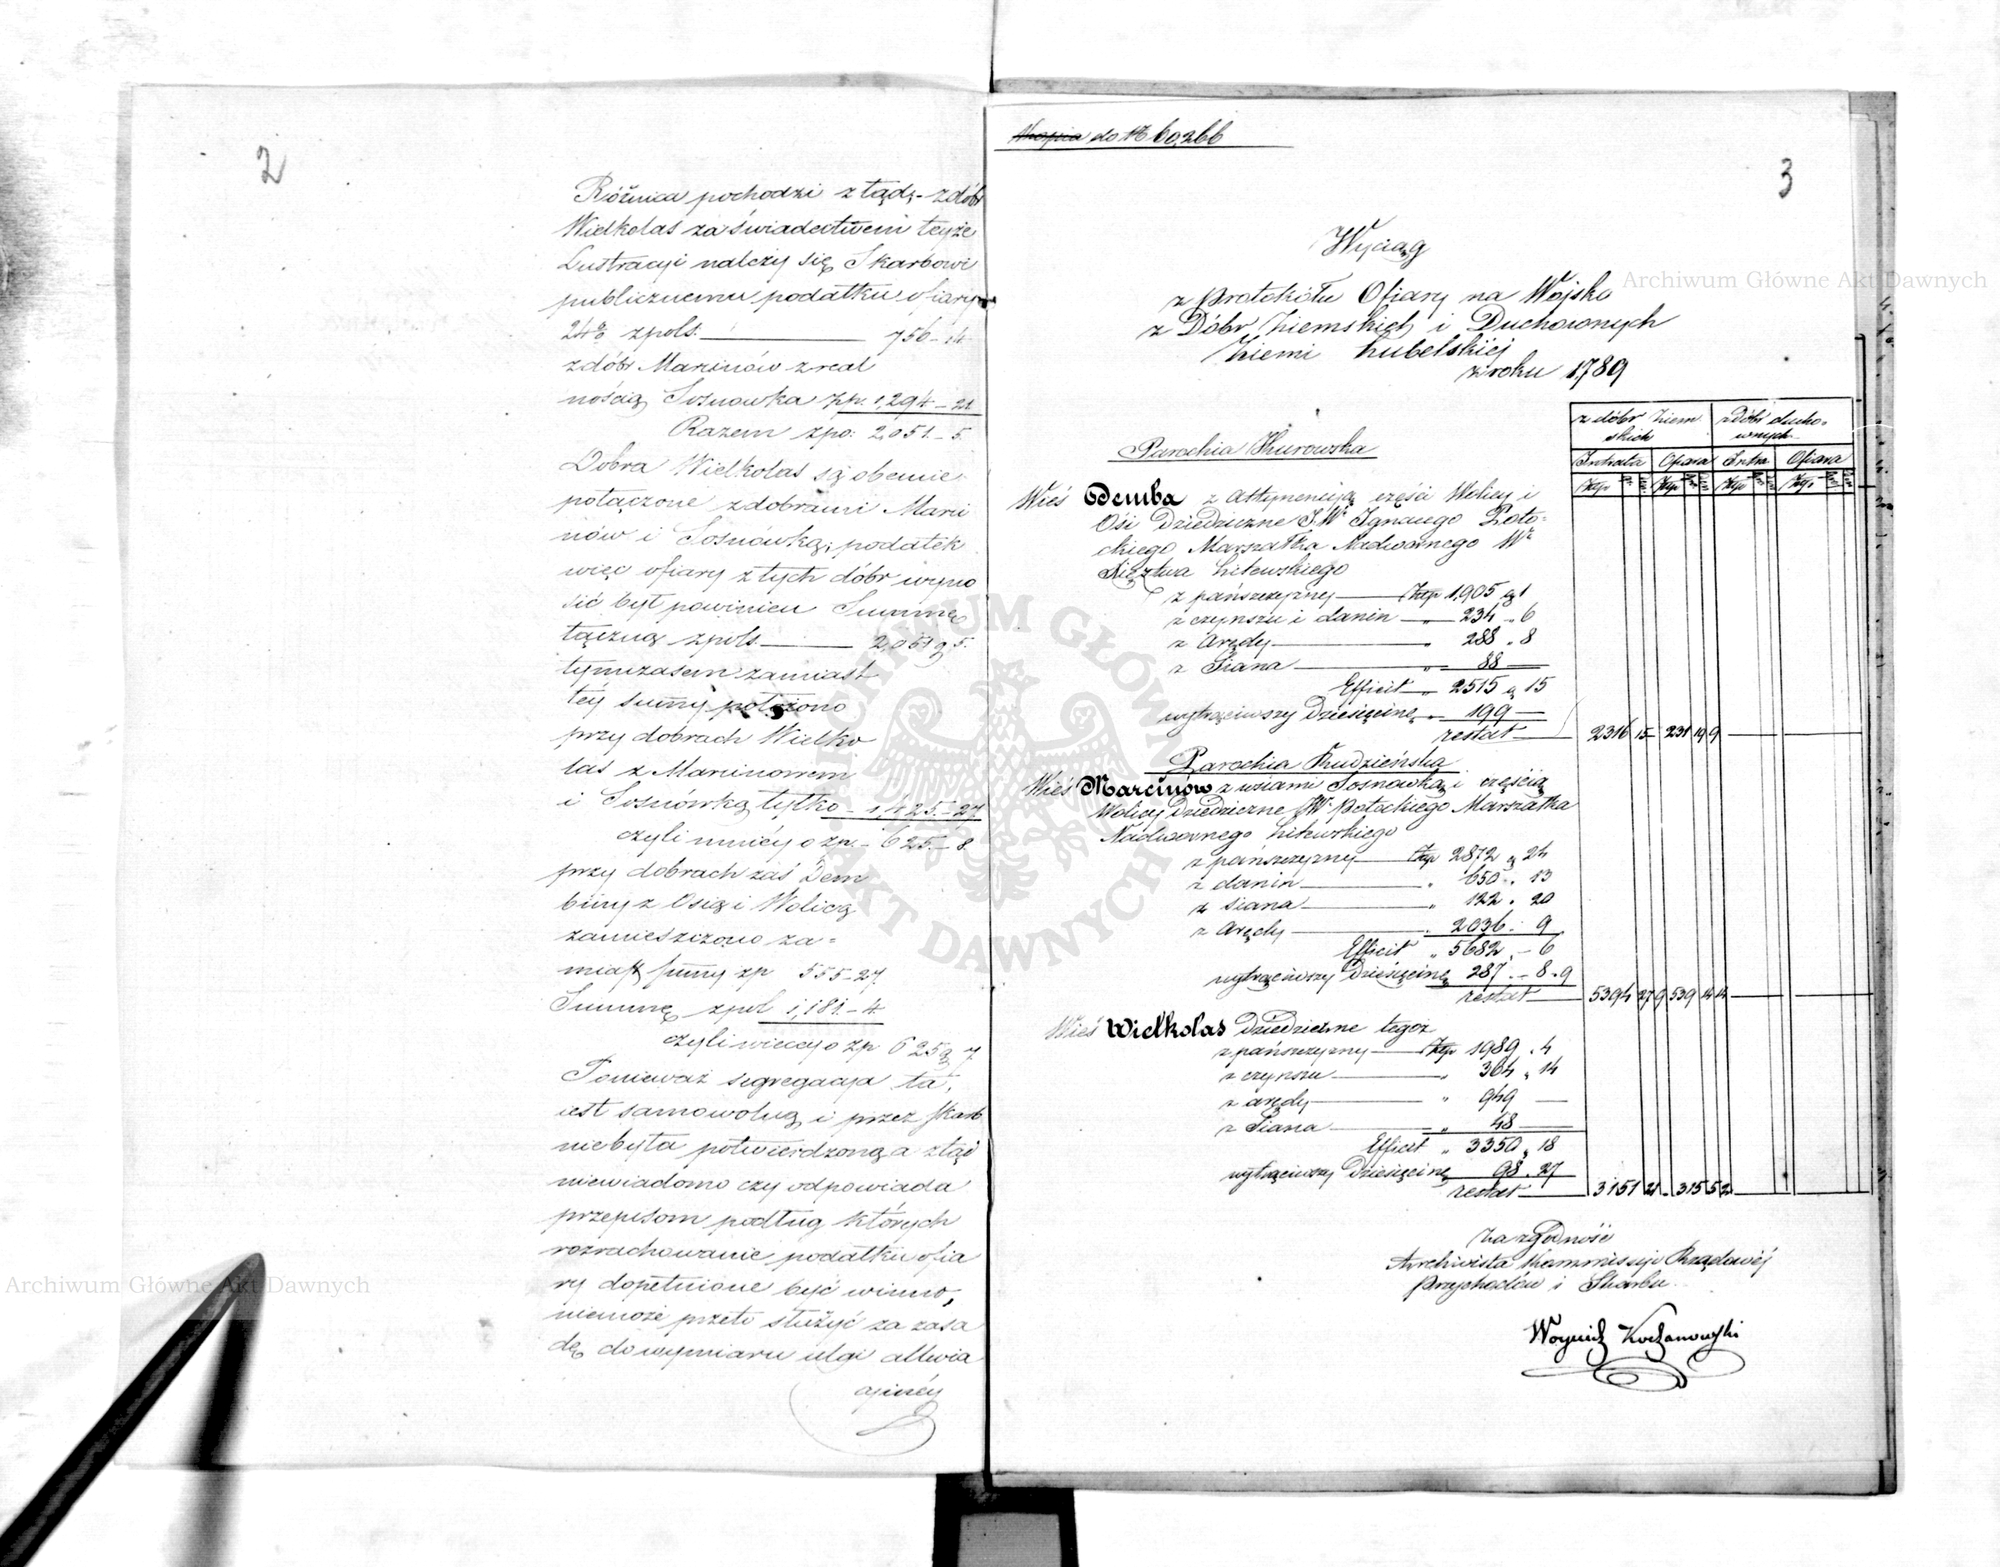 2
Różnica pochodzi ztąd; z dóbr
Wielkolas za świadectwem teyże
Lustracyi należy się Skarbowi
publicznemu podatku ofiary
24% zpols. 756-14
z dóbr Marcinów z real
nością Sosnowka zp. 1,294-21
Razem zpo: 2,051.-5.
Dobra Wielkolas są obecnie
połączone z dobrami Marci
nów i Sosnówką; podatek
więc ofiary z tych dóbr wyno
sić był powinien Summę
łączną zpols. 2,051 g 5.
tymczasem zamiast
téy summy położono
przy dobrach Wielko
las z Marcinowem
i Sosnówką tylko 1,425.-27
czyli mniéy o zp. 625.-8
przy dobrach zaś Dem
biny z Osią i Wolicą
zamieszczono za=
miast summy zp 555-27.
Summę zpol 1,181.-4
czyli więcey o zp 625 g 7
Ponieważ segregacya ta,
iest samowolną i przez Skarb
niebyła potwierdzoną a ztąd
niewiadomo czy odpowiada
przepisom podług których
rozrachowanie podatku ofia
ry dopełnione być winno,
niemoże przeto służyć za zasa
dę do wymiaru ulgi alluvia
cyinéy
do № 60,266
3
Wyciąg
z Protokółu Ofiary na Wojsko
z Dóbr Ziemskich i Duchownych
Ziemi Lubelskiéj
z roku 1789
z dóbr Ziem z Dóbr ducho-
skich wnych
Intrata Ofiara Intra Ofiara
Złp Złp Złp Złp
Parochia Kurowska
Wieś Demba z Attynencyą części Wolicy i
Osi Dziedziczne J.W. Ignacego Poto=
ckiego Marszałka Nadwornego W.
Księztwa Litewskiego
z pańszczyzny Złp 1,905 g 1
z czynszu i danin „ 234 „ 6
z Arędy „ 288 „ 8
z Siana „ 88
Efficit „ 2515 g 15
wytrąciwszy Dziesięcinę „ 199
restat 2316 15 231 19 9
Parochia Rudzieńska
Wieś Marcinów z wsiami Sosnowką i częścią
Wolicy Dziedziczne JW. Potockiego Marszałka
Nadwornego Litewskiego
z pańszczyzny Złp 2872 g 24
z danin „ 650 „ 13
z siana „ 122 „ 20
z Arędy „ 2036 „ 9
Efficit „ 5682 „ 6
wytrąciwszy Dziesięcinę 287 - 8 . 9
restat 5394 27 9 539 14 14
Wieś Wielkolas Dziedziczne tegoż
z pańszczyzny Złp 1989 „ 4
z czynszu „ 364 „ 14
z arędy „ 949
z Siana „ 48
Efficit „ 3350 „ 18
wytrąciwszy Dziesięcinę 98 . 27
restat 3151 21 315 5 2
Za zgodność
Archiwista Kommissyi Rządowéj
Przychodów i Skarbu
Woyciech Kochanowski
Archiwum Główne Akt Dawnych
Archiwum Główne Akt Dawnych
ARCHIWUM GŁÓWNE AKT DAWNYCH